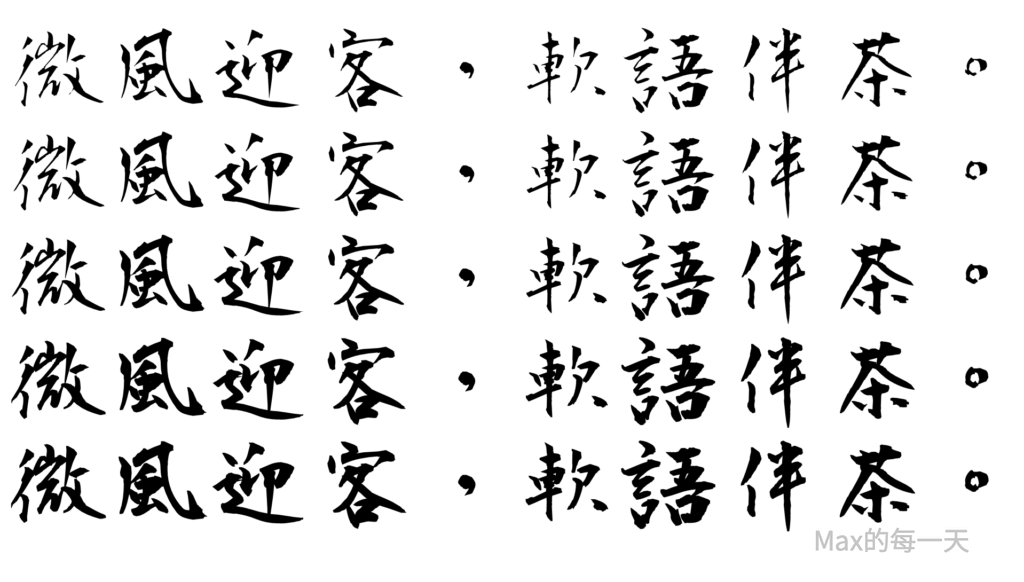 微風迎客，軟語伴茶。
微風迎客，軟語伴茶。
微風迎客，軟語伴茶。
微風迎客，軟語伴茶。
微風迎客，軟語伴茶。
Max的每一天